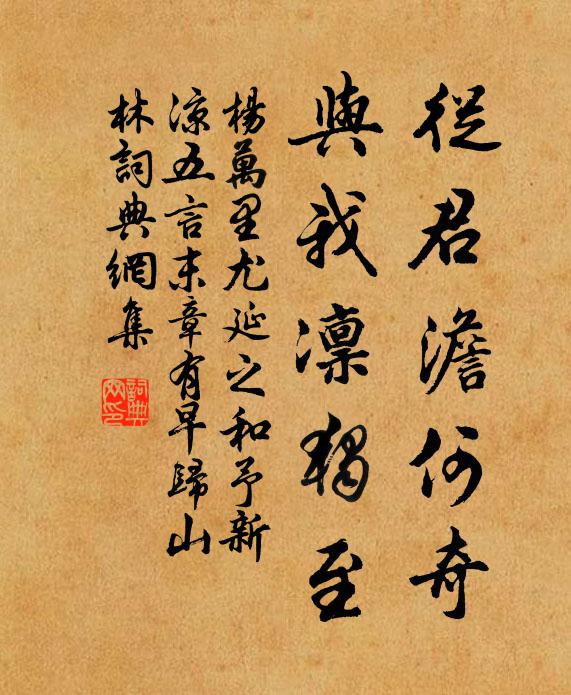 從君澹何奇
與我凛獨至
楊萬里尤延之和予新
凉五言末章有早歸山
林詞典網集
詞典
网印